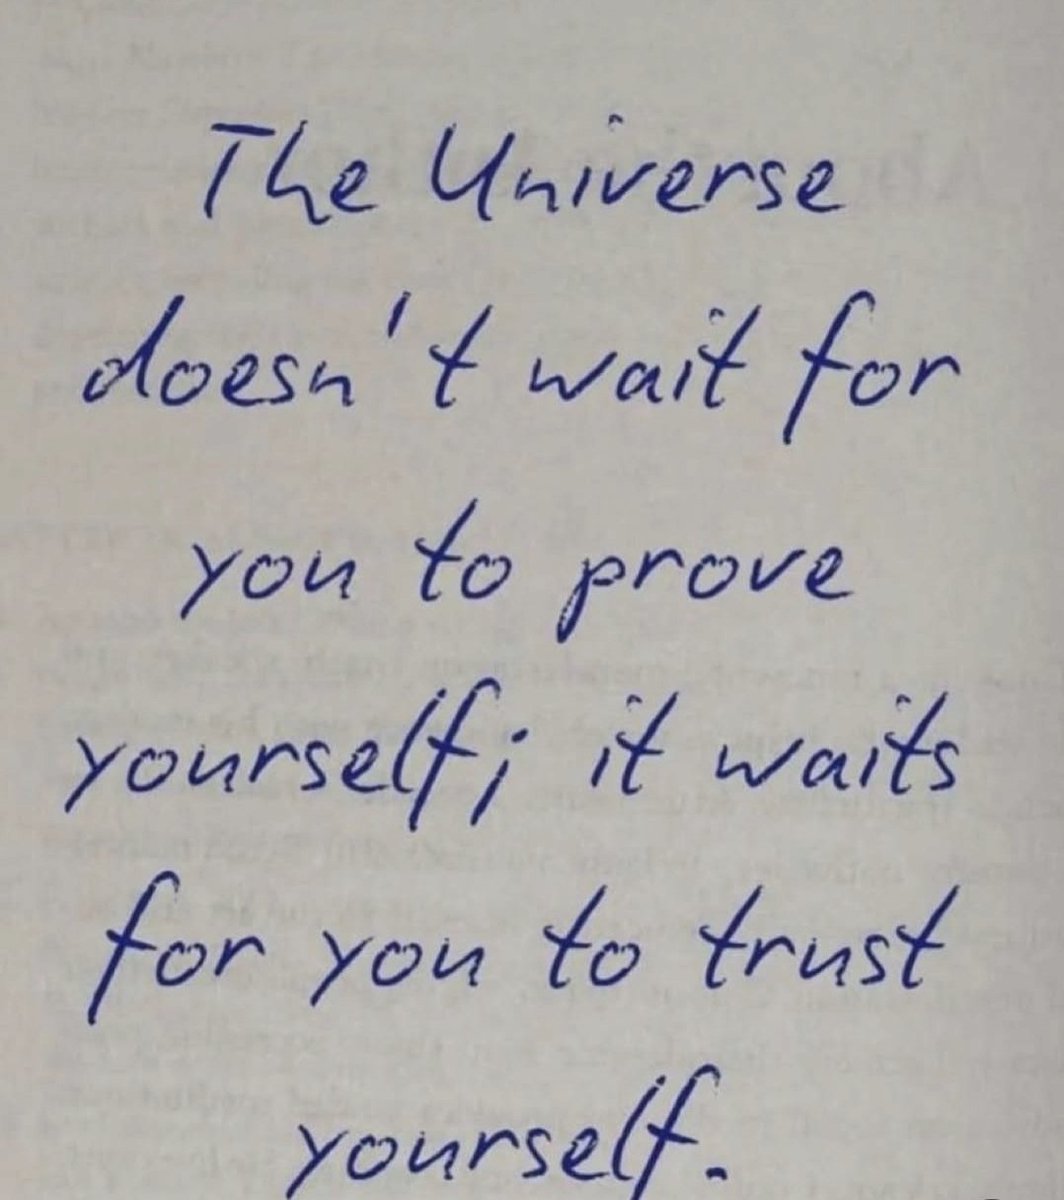 The Universe
doesn't wait for
you to prove
yourself; it waits
for you to trust
yourself.